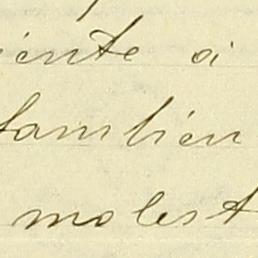 iente a
tambien
molest